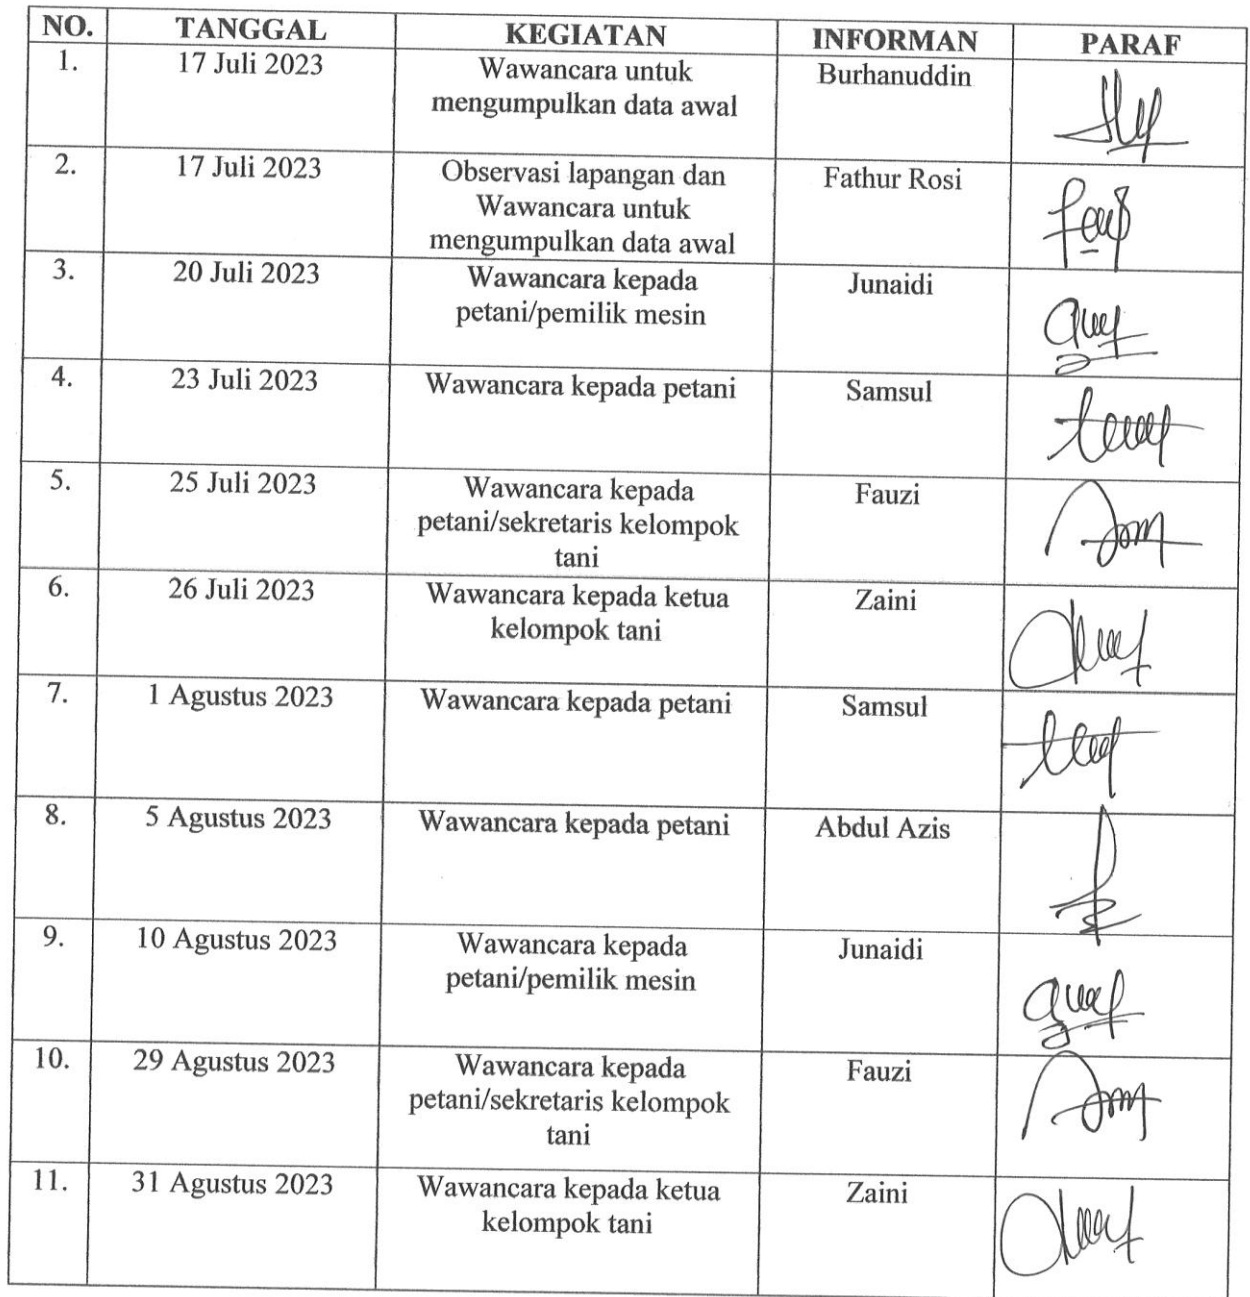 NO. TANGGAL KEGIATAN INFORMAN PARAF
1. 17 Juli 2023 Wawancara untuk Burhanuddin
mengumpulkan data awal
2. 17 Juli 2023 Observasi lapangan dan Fathur Rosi
Wawancara untuk
mengumpulkan data awal
3. 20 Juli 2023 Wawancara kepada Junaidi
petani/pemilik mesin
4. 23 Juli 2023 Wawancara kepada petani Samsul
5. 25 Juli 2023 Wawancara kepada Fauzi
petani/sekretaris kelompok
tani
6. 26 Juli 2023 Wawancara kepada ketua Zaini
kelompok tani
7. 1 Agustus 2023 Wawancara kepada petani Samsul
8. 5 Agustus 2023 Wawancara kepada petani Abdul Azis
9. 10 Agustus 2023 Wawancara kepada Junaidi
petani/pemilik mesin
10. 29 Agustus 2023 Wawancara kepada Fauzi
petani/sekretaris kelompok
tani
11. 31 Agustus 2023 Wawancara kepada ketua Zaini
kelompok tani